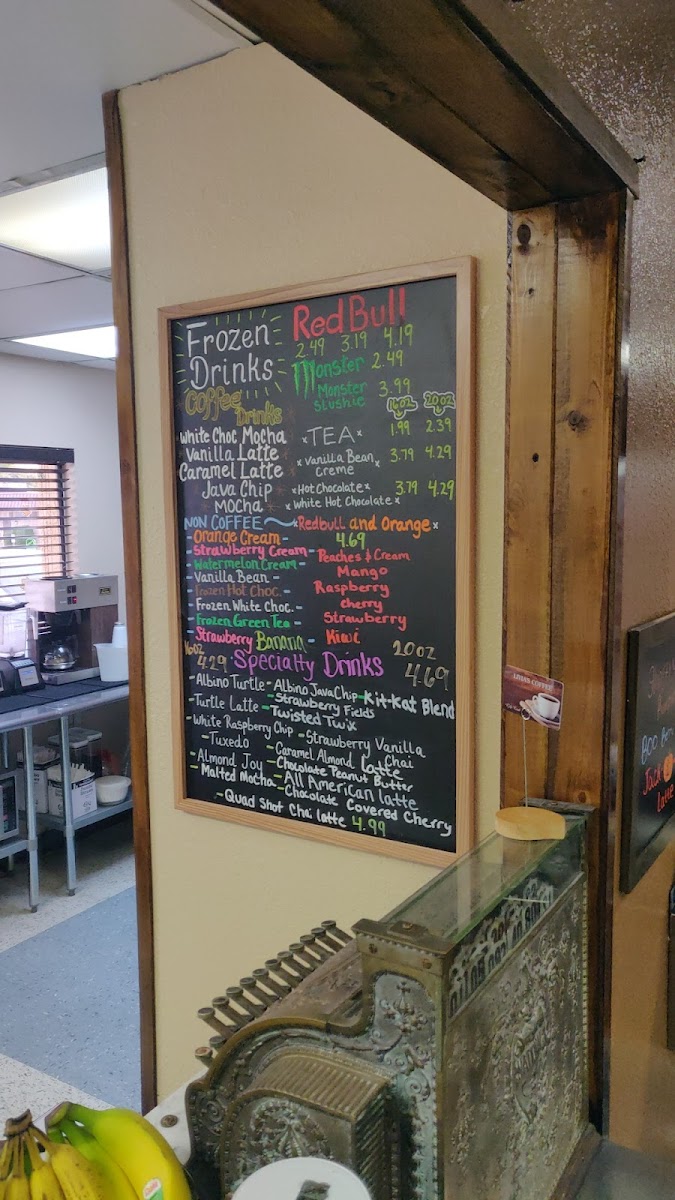 Frozen
Drinks
Coffee
Drinks
White Choc Mocha
Vanilla Latte
Caramel Latte
Java Chip
Mocha
NON COFFEE
- Orange Cream -
- Strawberry Cream -
- Watermelon Cream -
- Vanilla Bean -
- Frozen Hot Choc. -
- Frozen White Choc. -
- Frozen Green Tea -
- Strawberry Banana -
Red Bull
2.49 3.19 4.19
Monster 2.49
Monster
Slushie 3.99
16oz 20oz
x TEA x 1.99 2.39
x Vanilla Bean x 3.79 4.29
Creme
x Hot Chocolate x 3.79 4.29
x White Hot Chocolate x
x Redbull and Orange x
4.69
Peaches & Cream
Mango
Raspberry
Cherry
Strawberry
Kiwi
16oz
4.29
Specialty Drinks
20oz
4.69
- Albino Turtle - Albino Java Chip - Kit-Kat Blend
- Turtle Latte - Strawberry Fields
- Twisted Twix
- White Raspberry Chip - Strawberry Vanilla
Chai
- Tuxedo - Caramel Almond Latte
- Almond Joy - Chocolate Peanut Butter
- Malted Mocha - All American Latte
- Chocolate Covered Cherry
- Quad Shot Chai latte 4.99
COFFEE
Boo
Jack
Latte